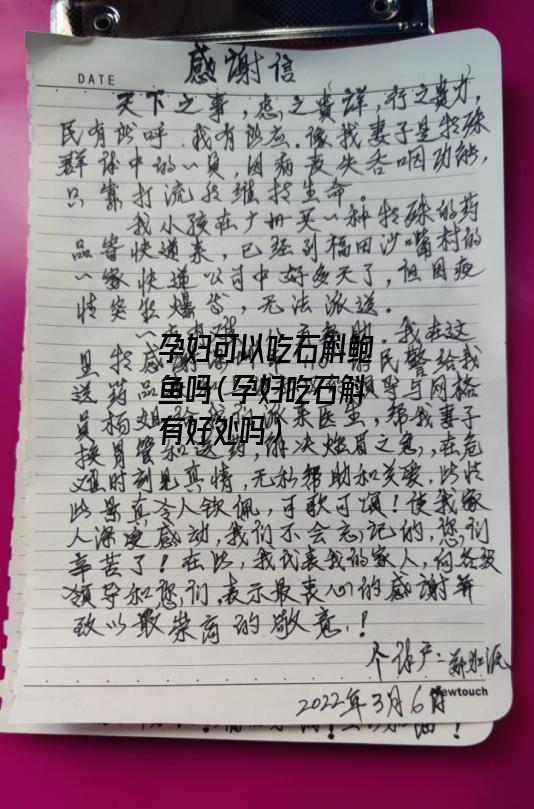 DATE
感谢信
天下之事，虑之贵详，行之贵力，
民有所呼，我有所应。像我妻子是特殊
群体中的一员，因病丧失吞咽功能，
只靠打流食维持生命。
我小孩在广州买一种特殊的药
品寄快递来，已经到福田沙嘴村的
一家快递公司中好多天了，但因疫
情突然爆发，无法派送。
我在这
孕妇可以吃石斛鲍
里特感谢 民警给我
鱼吗(孕妇吃石斛
送药品 领导与网格
有好处吗)
员杨 派来医生，帮我妻子
换胃管和送药，解决燃眉之急，在危
难时刻见真情，无私帮助和关爱，此情
此景真令人钦佩，可歌可颂！使我家
人深受感动，我们不会忘记的，您们
辛苦了！在此，我代表我的家人，向各级
领导和您们，表示最衷心的感谢并
致以最崇高的敬意！
2022年3月6日
Newtouch